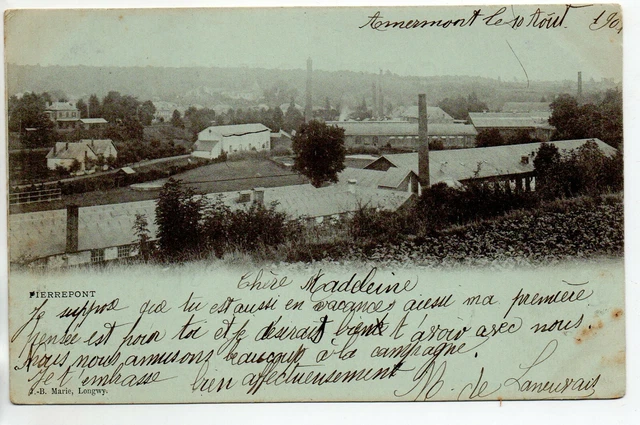 Amermont le 10 Août 190
Chère Madeleine
PIERREPONT
Je suppose que tu est aussi en vacances aussi ma première
pensée est pour toi et je désirais t avoir avec nous.
Nous nous amusons beaucoup à la campagne.
Je t'embrasse bien affectueusement M. de Laneuvais
J.-B. Marie, Longwy.